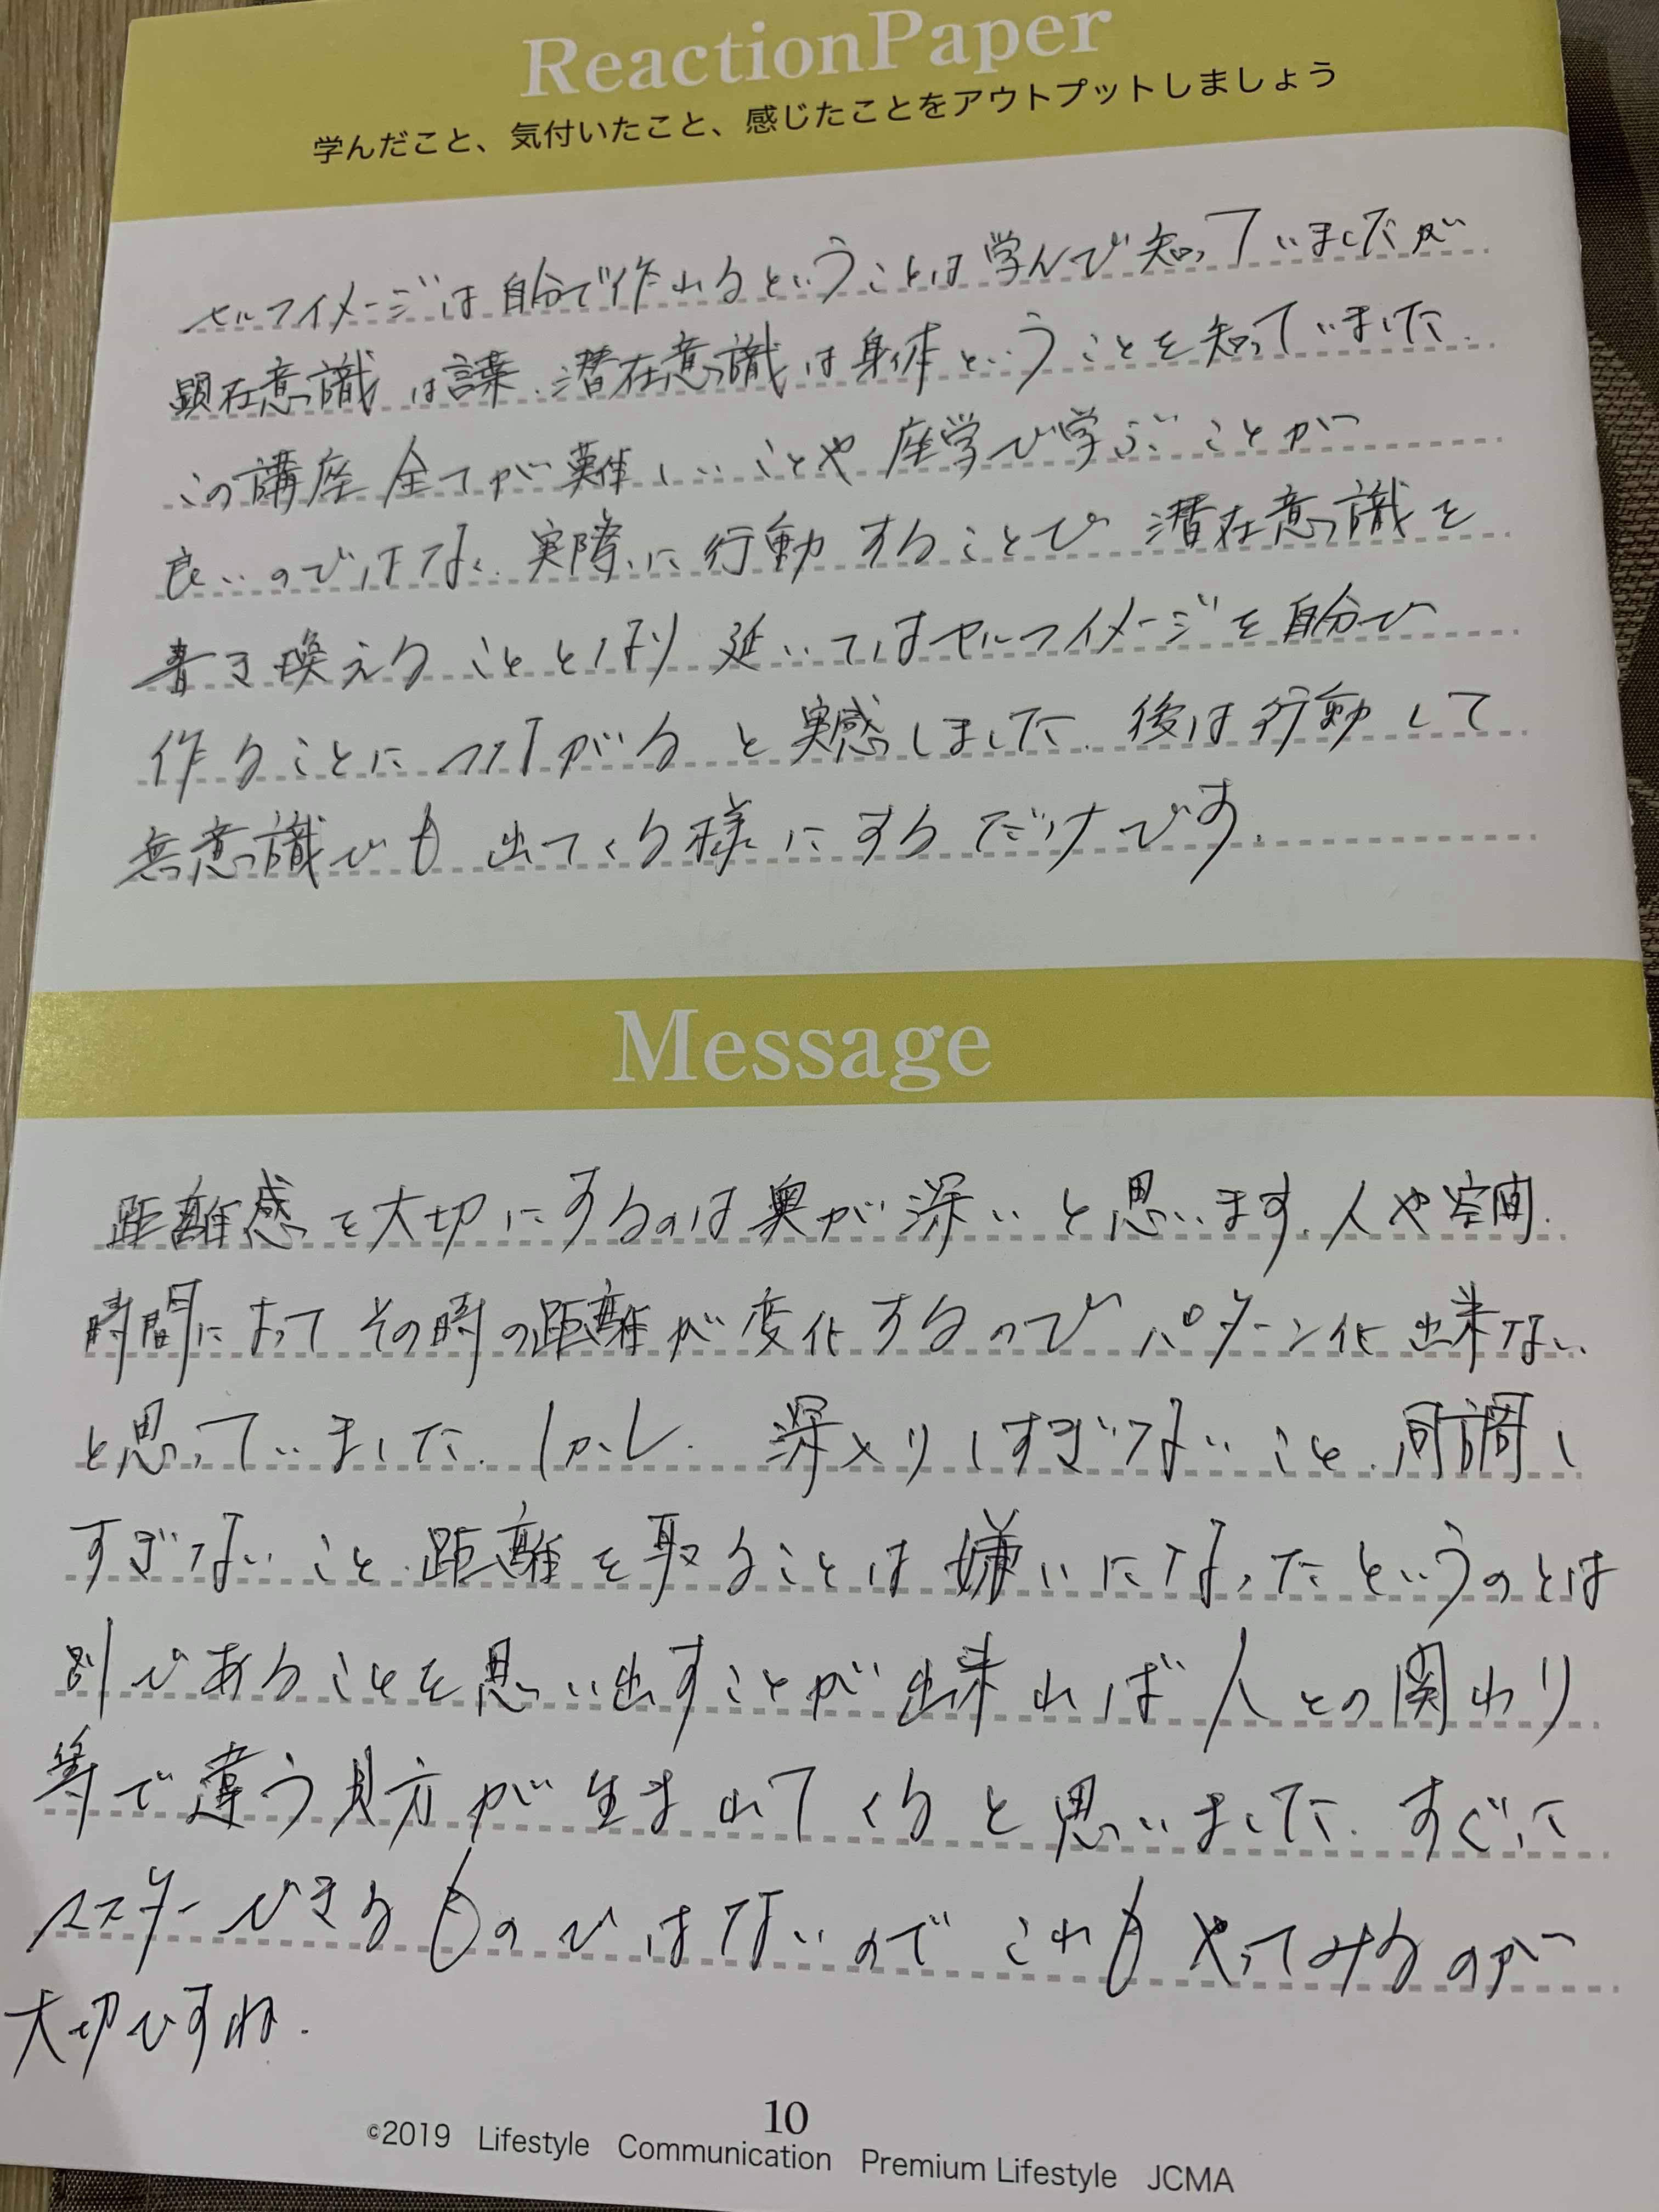 ReactionPaper
学んだこと、気付いたこと、感じたことをアウトプットしましょう
セルフイメージは自分で作れるということは学んで知っていましたが
顕在意識は言葉、潜在意識は身体ということを知っていました。
この講座全てが難しいことや座学で学ぶことが
良いのではなく、実際に行動することで潜在意識を
書き換えることとなり延いてはセルフイメージを自分で
作ることにつながると実感しました。後は行動して
無意識でも出てくる様にするだけです。
Message
距離感を大切にするのは奥が深いと思います。人や空間、
時間によってその時の距離が変化するのでパターン化出来ない
と思っていました。しかし、深入りしすぎないこと、同調し
すぎないこと、距離を取ることは嫌いになったというのとは
別であることを思い出すことが出来れば人との関わり
等で違う見方が生まれてくると思いました。すぐに
マスターできるものではないのでこれもやってみるのが
大切ですね。
10
©2019 Lifestyle Communication Premium Lifestyle JCMA